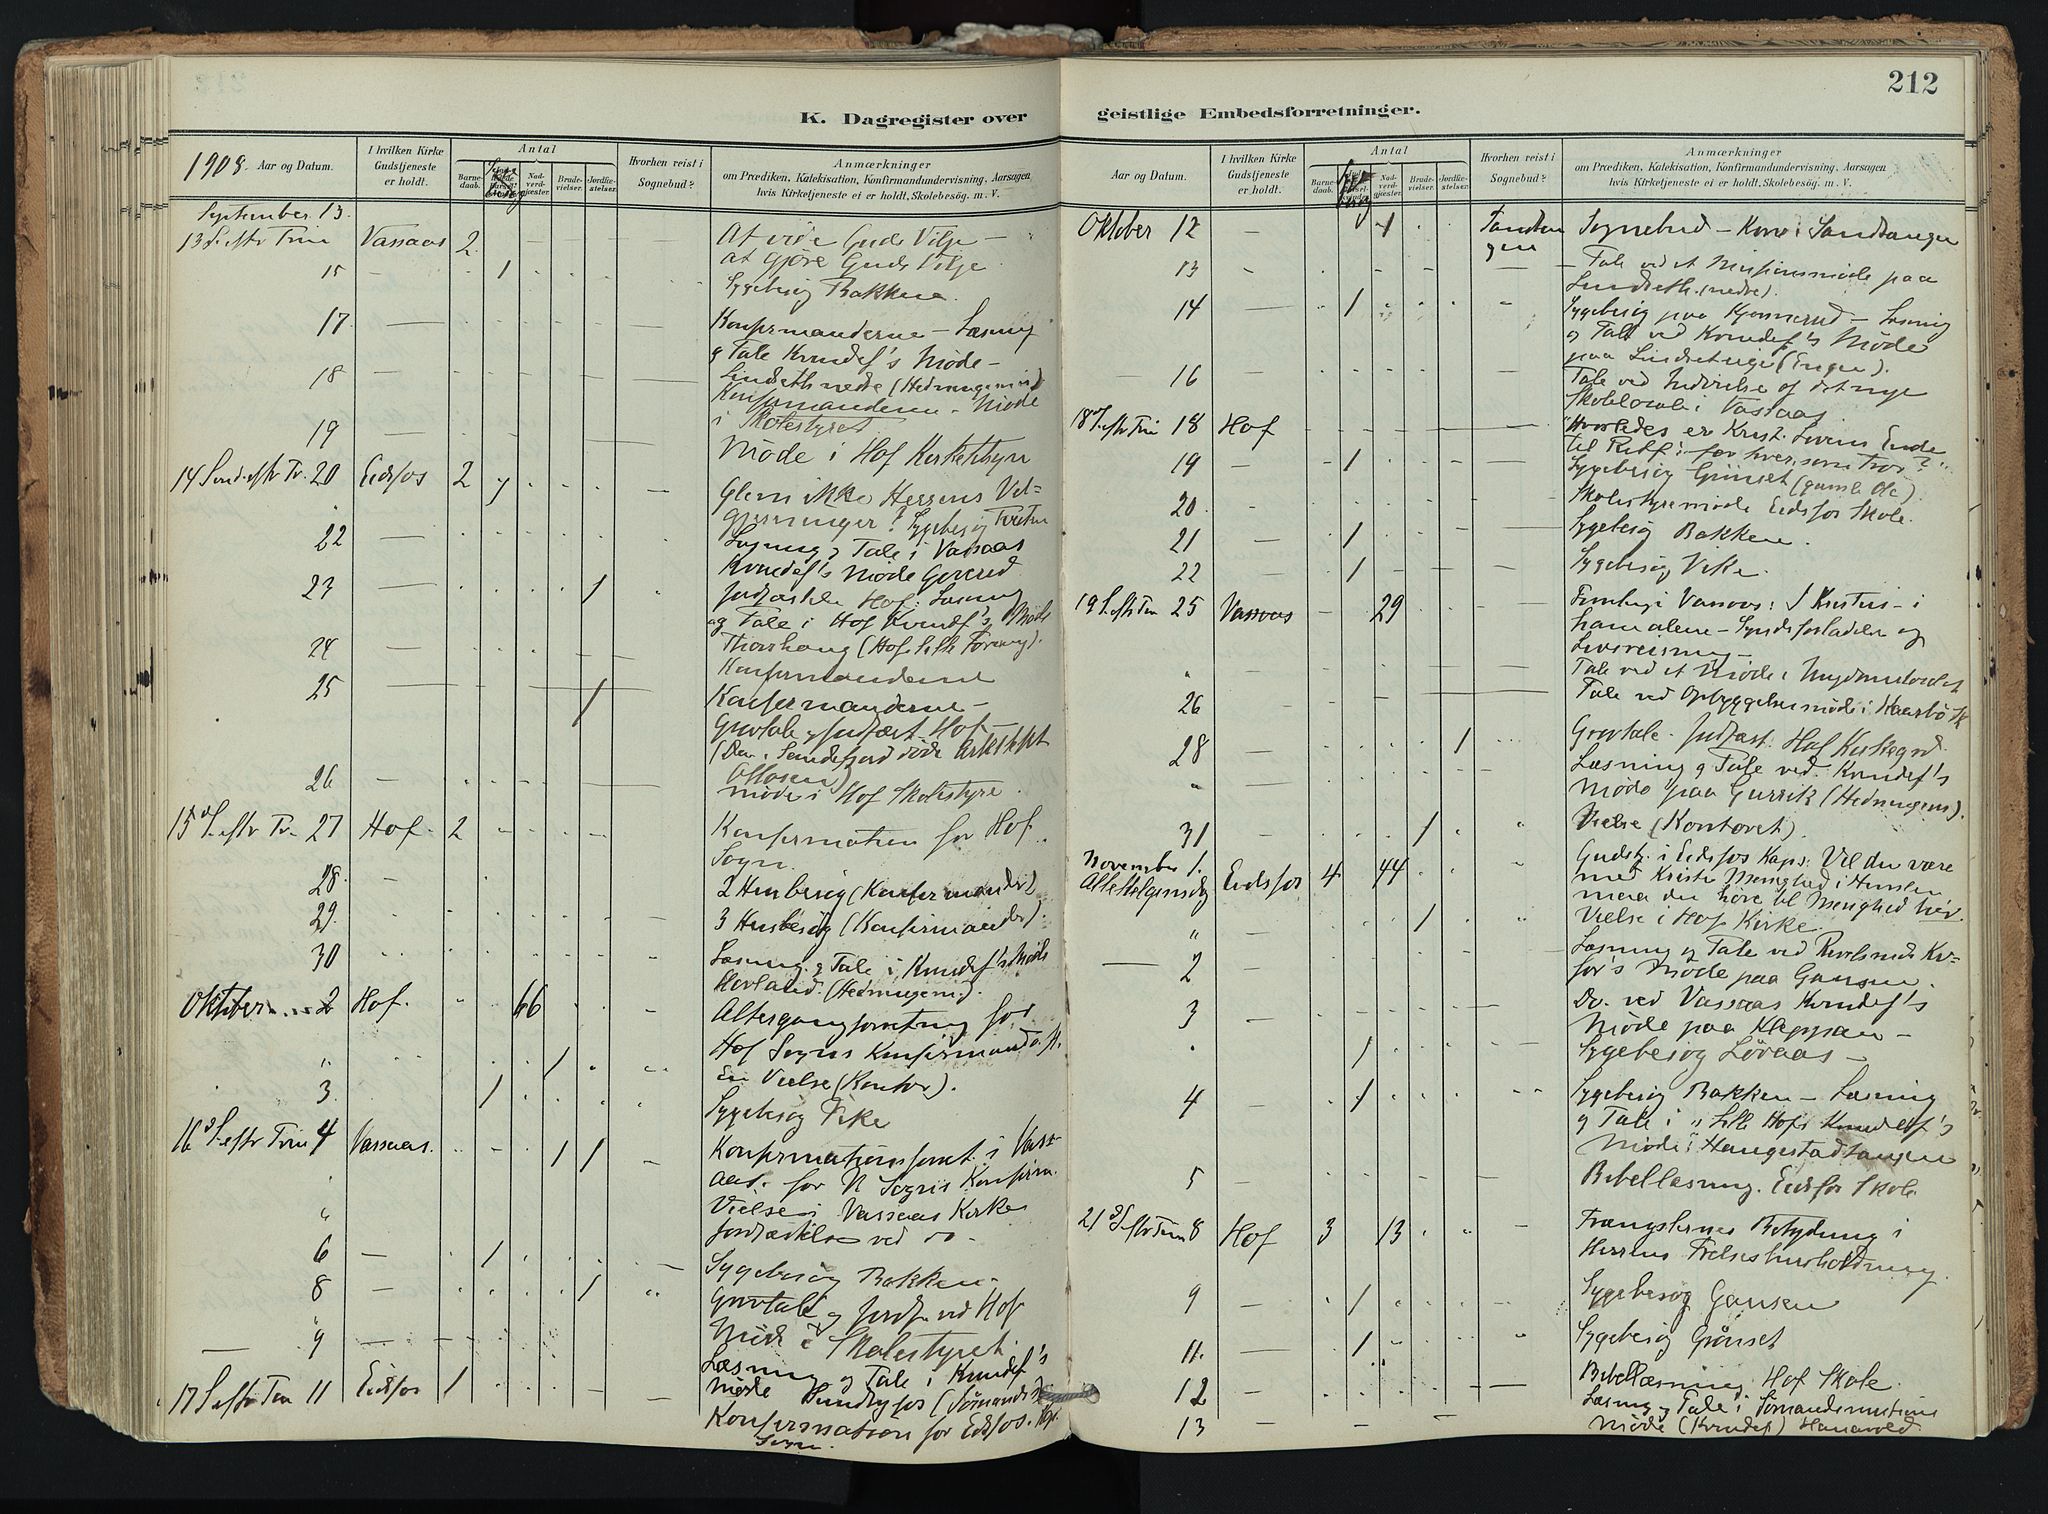 212
K. Dagregister over
geistlige Embedsforretninger.
1908. Aar og Datum.
I hvilken Kirke Gudstjeneste er holdt.
Antal
Barnedaab.
Nadverdgjester.
Brudevielser.
Jordfæstelser.
Hvorhen reist i Sognebud?
Anmærkninger
om Prædiken, Katekisation, Konfirmandundervisning, Aarsagen
hvis Kirketjeneste ei er holdt, Skolebesøg. m. V.
September 13.
13 S. eftr Trin Vassaas 2 At vide Guds Vilje –
at gjøre Guds Vilje
15 – 1 Sygebesøg Bakkene.
17. Konfirmanderne – Læsning
& Tale Kvindef's Møde –
18 Lindseth nedre (Hedningemis)
Konfirmanderne – Møde
i Skolestyret
19 Møde i Hof
14 Snd. eftr Tr. 20 Eidsfos 2 Glem ikke Herrens Vel-
gjerninger! Sygebesøg
22 Læsning & Tale i Vassaas
Kvindef's Møde
23 1 Jordfæstelse Hof. Læsning
og Tale i Hof Kvindf's Møde
24 Thorshaug (Hof
Konfirmanderne
25 1 Konfirmanderne –
Gravtale & Jordfæst Hof –
(Den i Sandefjord døde Arkitekt
26 Møde i Hof Skolestyre.
15 S. eftr Tr. 27 Hof. 2 Konfirmation for Hof
Sogn.
28. 2 Husbesøg (Konfirmander)
29. 3 Husbesøg (Konfirmander).
30 Læsning & Tale i Kvindef's Møde
Hovland. (Hedningemis).
Oktober 2 Hof. 66 Altergangsforretning for
Hof Sogns Konfirmand
1 En Vielse (Kontor).
3 1 Sygebesøg Vike
16 S. eftr Trin 4 Vassaas. 1 1 Konfirmationsforret. i Vass-
aas. for N Sogns Konfirm.
Vielse i Vassaas Kirke
Jordfæstelse ved do –
6 – 1 Sygebesøg Bakken –
8 – 1 Gravtale og Jordf. ved Hof
9 Møde i Skolestyret.
Læsning og Tale i Kvindef's
Møde Sundbyfos (Sømandsm
17 S. eftr Trin 11 Eidsfos 1 Konfirmation for Eidsfos Kap.
Sogn.
Aar og Datum.
I hvilken Kirke Gudstjeneste er holdt.
Antal
Barnedaab.
Nadverdgjester.
Brudevielser.
Jordfæstelser.
Hvorhen reist i Sognebud?
Anmærkninger
om Prædiken, Katekisation, Konfirmandundervisning, Aarsagen
hvis Kirketjeneste ei er holdt, Skolebesøg. m. V.
Oktober 12 – 1 Sognebud – Kone i Sandtangen
13 – Tale ved et Missionsmøde paa
Lindseth (nedre).
14 – 1 Sygebesøg paa – Læsning
& Tale ved Kvindef's Møde
paa (Engen).
16 Tale ved Indvielse af det nye
Skolelokale i Vassaas
18 S. eftr Trin 18 Hof Hvorledes er Krist. Lovens Ende
til Retf. for hver som tror?
19 – 1 Sygebesøg Grünset (gamle Ole)
20 Skolestyremøde Eidsfos Skole.
21 – 1 Sygebesøg Bakken.
22 – 1 Sygebesøg Vike.
19 S. eftr Trin 25 Vassaas 29 Familiegu Vassaas: I Kristus – i
ham alene – Syndsforladelse og
Tale ved et Møde i
26 Tale ved Opbyggelsesmøde i Haasbø Sk
28 1 Gravtale – Jordfæst. Hof Kirkegrd.
Læsning & Tale ved Kvindef's
Møde paa (Hedningemis).
31 1 Vielse (Kontoret).
November 1. Gudstj. i Eidsfos Kap. Vil du være
Allehelgensdag Eidsfos 4 44 med Kristi Menighed i Himlen
maa du høre til Menighed her.
1 Vielse i Hof Kirke.
2 – Læsning & Tale ved
Møde paa Gansen.
3 Do. ved Vassaas Kvindef's
Møde paa Klepsan –
1 Sygebesøg Løvaas –
4 1 Sygebesøg Bakken – Læsning
& Tale i Hofs Kvindef's
Møde i Haugestadtangen
5 – Bibellæsning. Eidsfos Skole
21 S. eftr Trin 8 Hof 3 13 Trængslernes Betydning i
Herrens Frelseshusholdning.
9 – 1 Sygebesøg Gansen
11. – 1 Sygebesøg Grønset
12 Bibellæsning Hof Skole.
13 Læsning & Tale i Sømandsmissions
Møde (Kvindef) Hanavold